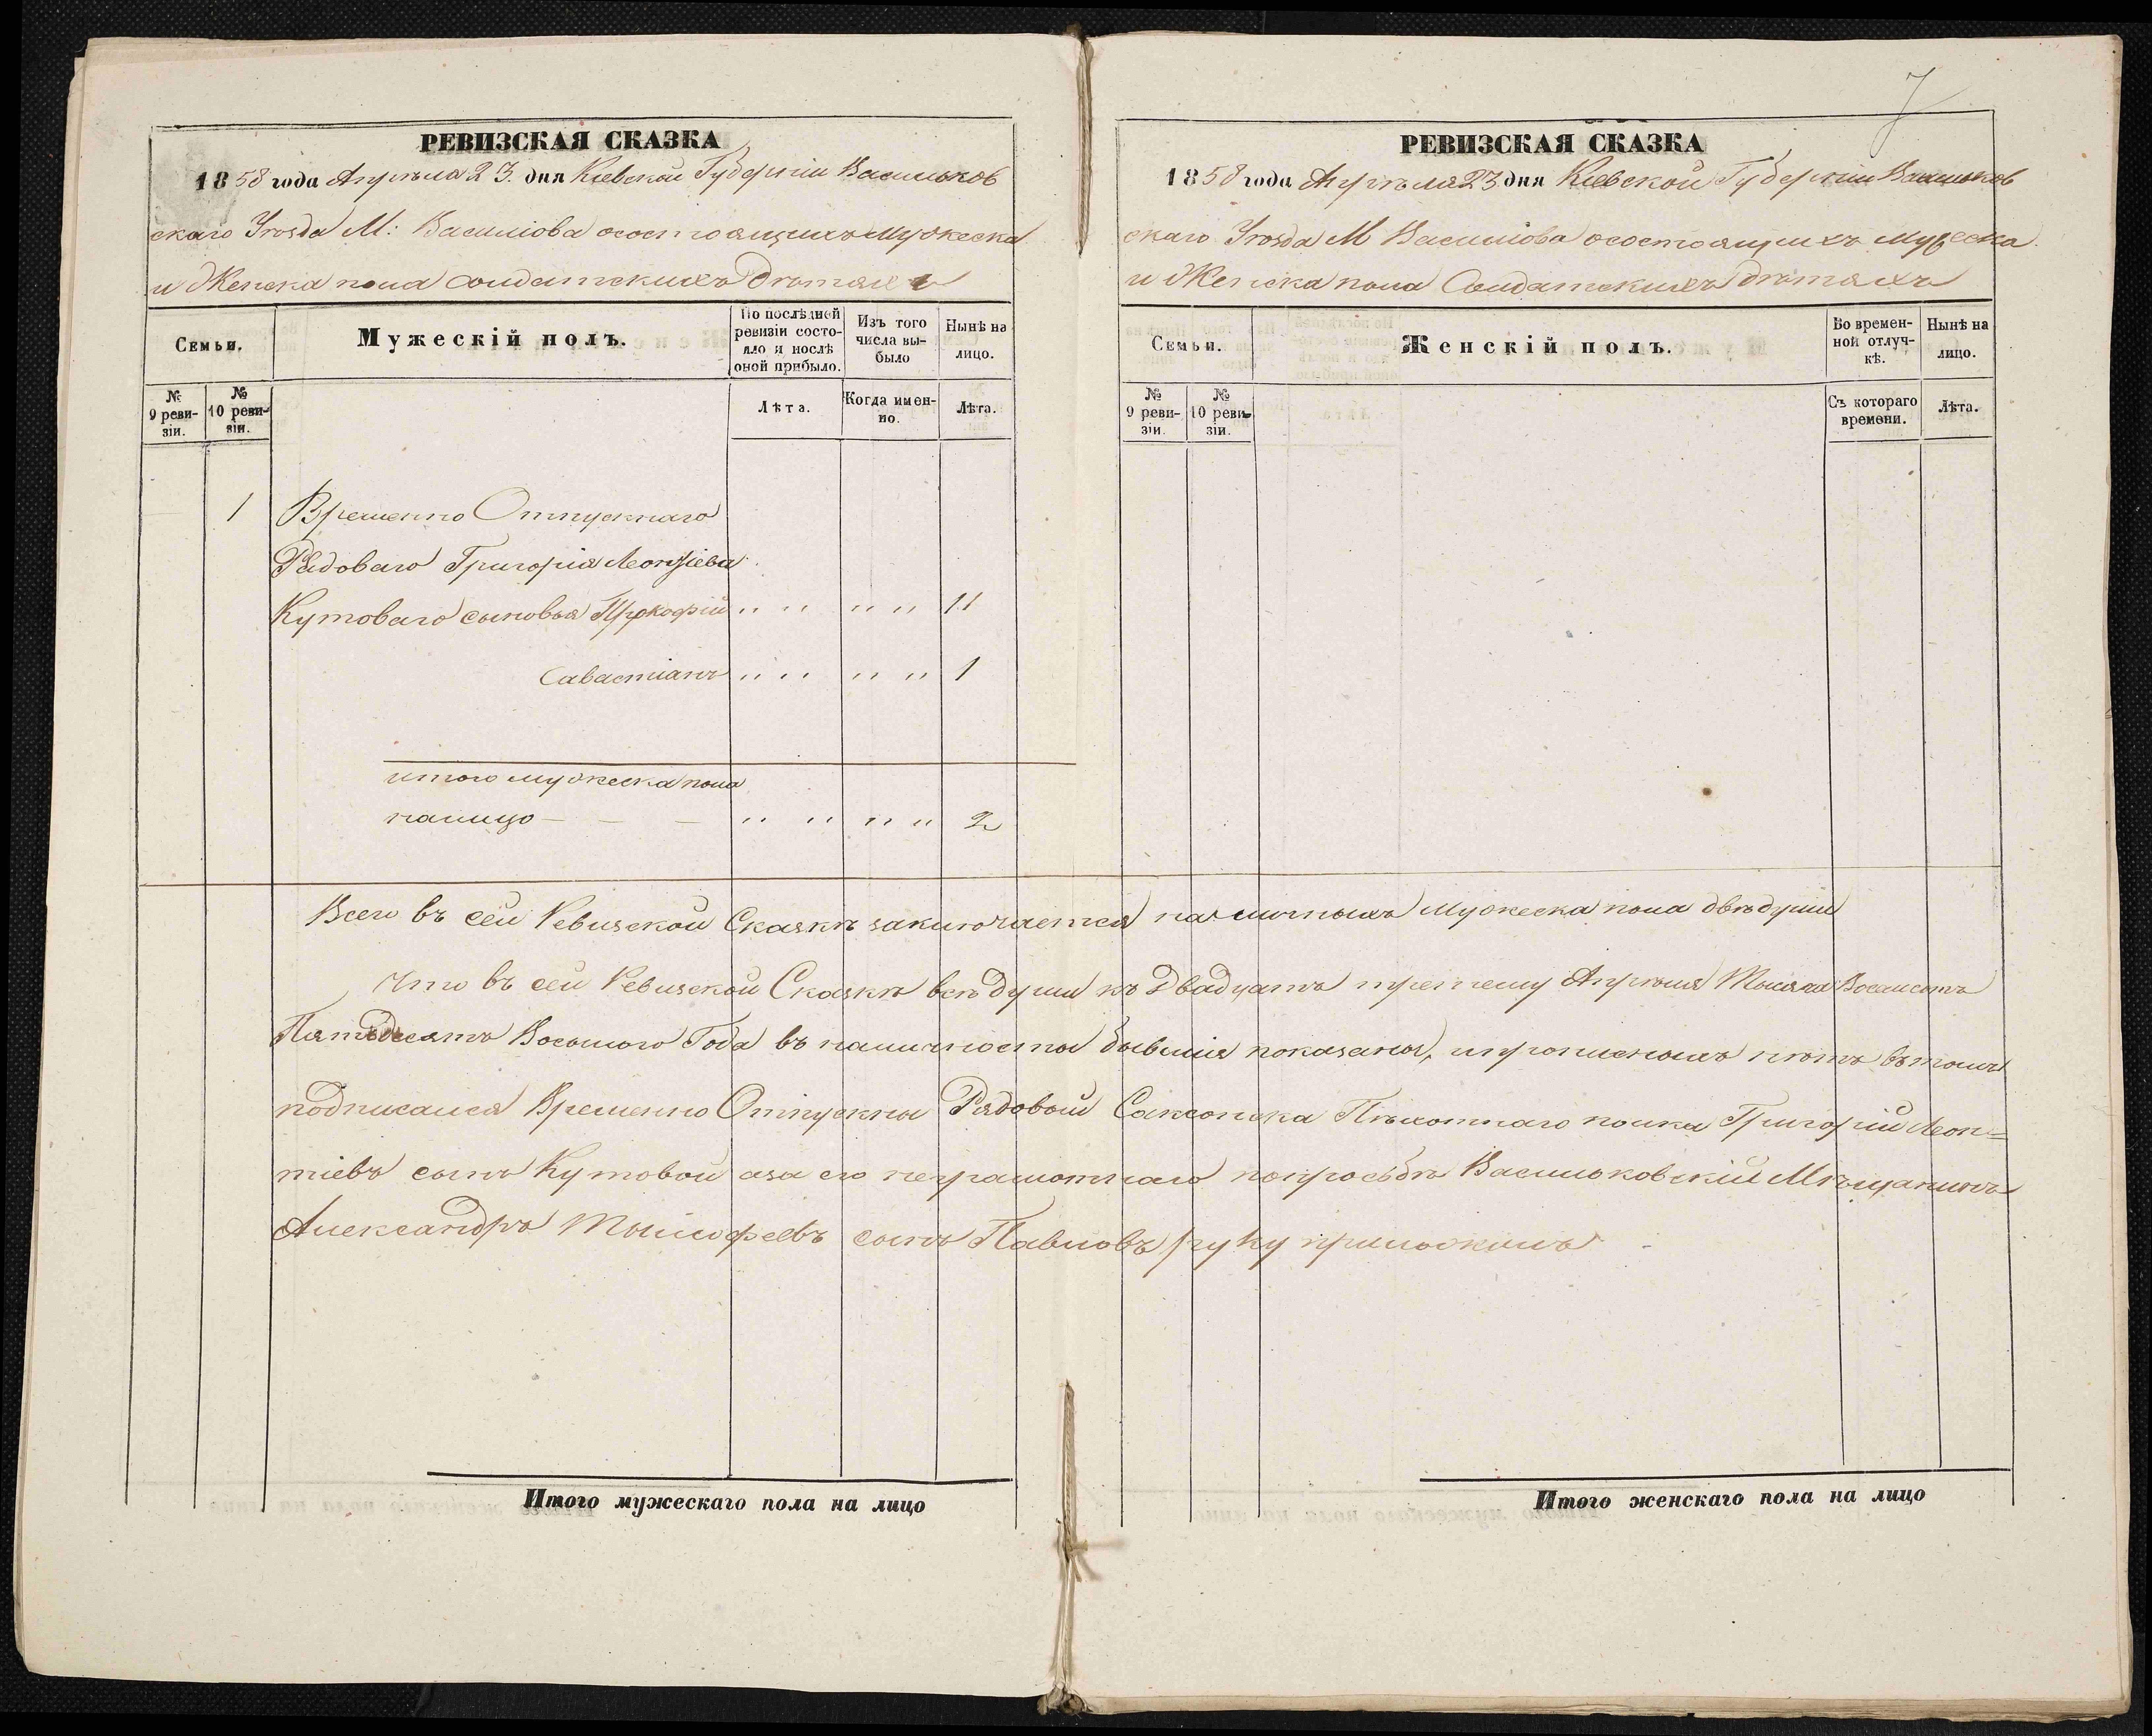 РЕВИЗСКАЯ СКАЗКА
1858 года Апрѣля 23. дня Кіевской Губерніи Васильков
скаго Уѣзда М: Василіова осостоящихъ мужеска
и Женска пола солдатскихъ дѣтяхъ
Семьи.
Мужескій полъ.
По послѣдней ревизіи состояло и послѣ оной прибыло.
Изъ того числа выбыло
Нынѣ на лицо.
№ 9 ревизіи.
№ 10 ревизіи.
Лѣта.
Когда именно.
Лѣта.
1 Временно Отпускнаго
Рядоваго Григорія Леонтіева
Кутоваго сыновья Прокофій " " " " 11
Савастіанъ " " " " 1
итого мужеска пола
налицо — — — " " " " 2
7
РЕВИЗСКАЯ СКАЗКА
1858 года Апрѣля 23 дня Кіевской Губерніи Васильков
скаго Уѣзда М Василіова осостоящихъ мужеска
и Женска пола Солдатскихъ дѣтяхъ
Семьи.
Женскій полъ.
Во временной отлучкѣ.
Нынѣ на лицо.
№ 9 ревизіи.
№ 10 ревизіи.
Съ котораго времени.
Лѣта.
Всего въ сей Ревизской Сказкѣ заключается наличныхъ мужеска пола двѣ души
Что въ сей Ревизской Сказкѣ всѣ души къ Двадцать третьему Апрѣля Тысяча Восемсотъ
Пятьдесятъ Восьмого Года въ наличности бывшія показаны, и прописныхъ нѣтъ въ томъ
подписался Временно Отпускны Рядовой Саксонска Пѣхотнаго полка Григорій Леон=
тіевъ сынъ Кутовой аза его неграмотнаго попросьбѣ Васильковскій Мѣщанинъ
Александръ Тымофеевъ сынъ Павловъ руку приложилъ
Итого мужескаго пола на лицо
Итого женскаго пола на лицо